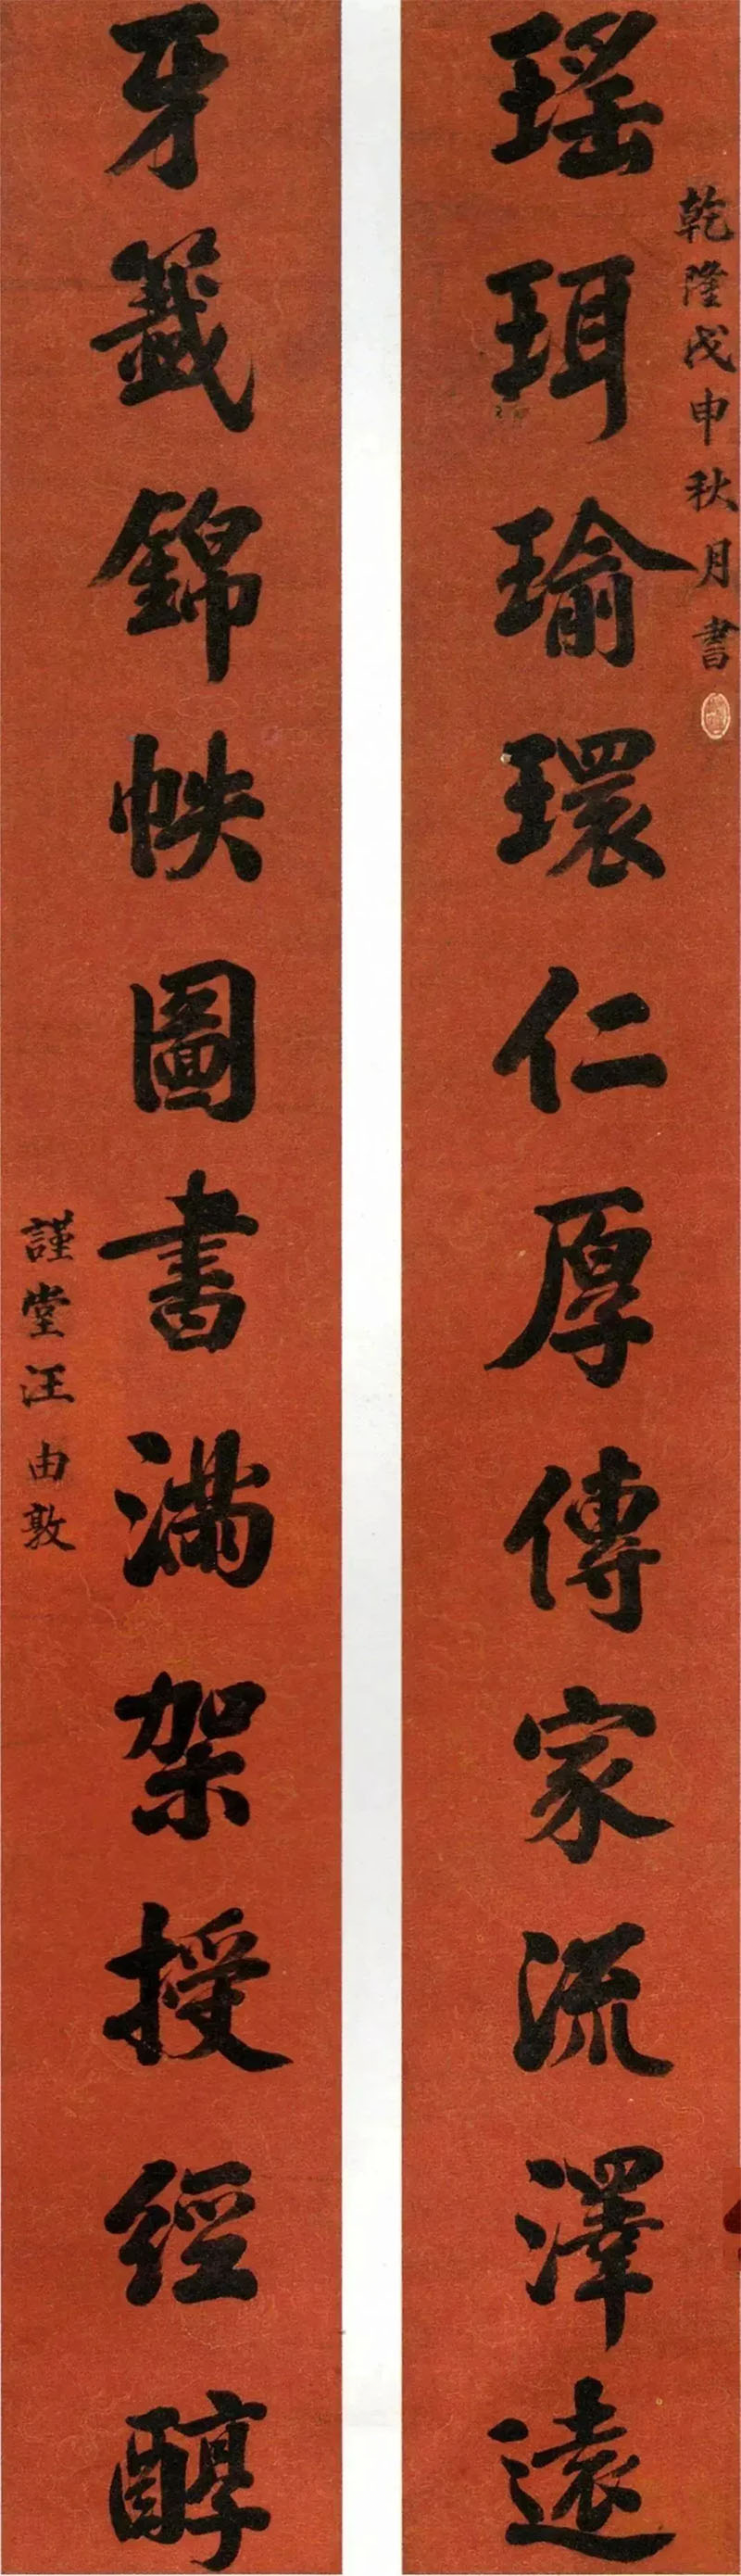 乾隆戊申秋月書
瑤珥瑜環仁厚傳家流澤遠
牙籤錦帙圖書滿架授經醇
謹堂汪由敦